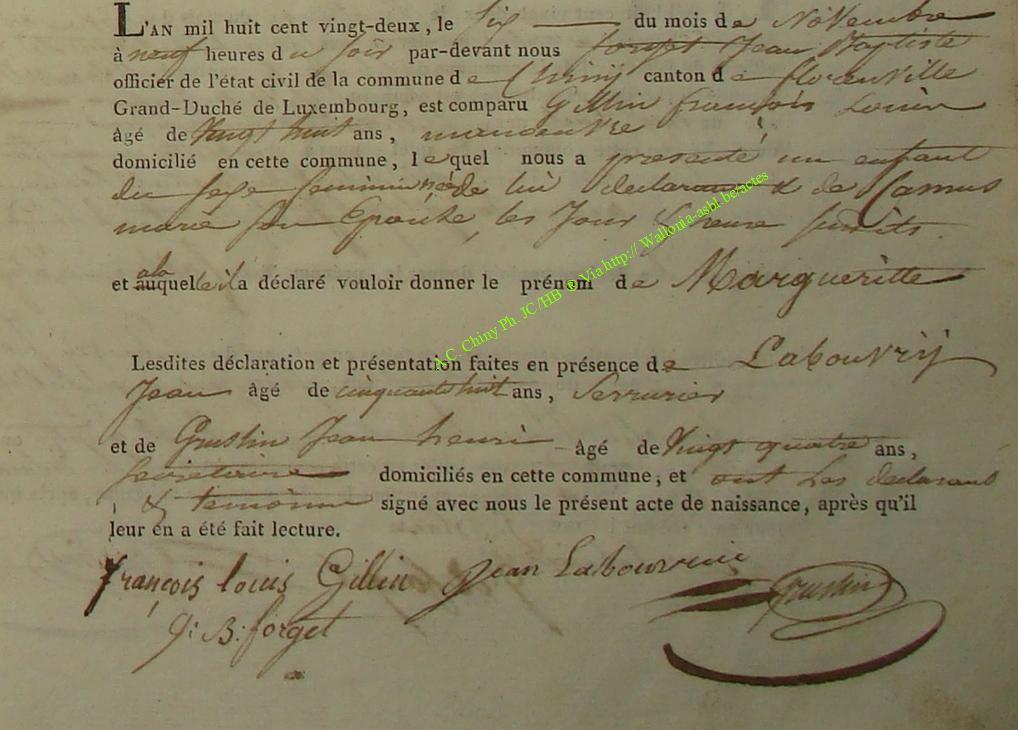 L'AN mil huit cent vingt-deux, le six du mois de Novembre
à neuf heures du soir par-devant nous forget Jean Baptiste
officier de l'état civil de la commune de Chiny canton de florenville
Grand-Duché de Luxembourg, est comparu Gillin françois Louis
âgé de vingt huit ans, manoeuvre
domicilié en cette commune, lequel nous a presenté un enfant
du sexe feminin née de lui declarant & de Camus
marie son Epouse, les Jour & heure susdits.
et auquel a la quelle il a déclaré vouloir donner le prénom de Margueritte
Lesdites déclaration et présentation faites en présence de Labouvrij
Jean âgé de cinquante huit ans, Serrurier
et de Grustin Jean henri âgé de vingt quatre ans,
secretaire domiciliés en cette commune, et ont les declarant
& temoins signé avec nous le présent acte de naissance, après qu'il
leur en a été fait lecture.
françois louis Gillin Jean Labouvrie Grustin
J: B: forget
A.C. Chiny Ph. JC/HB © Via http:// Wallonia-asbl.be/actes